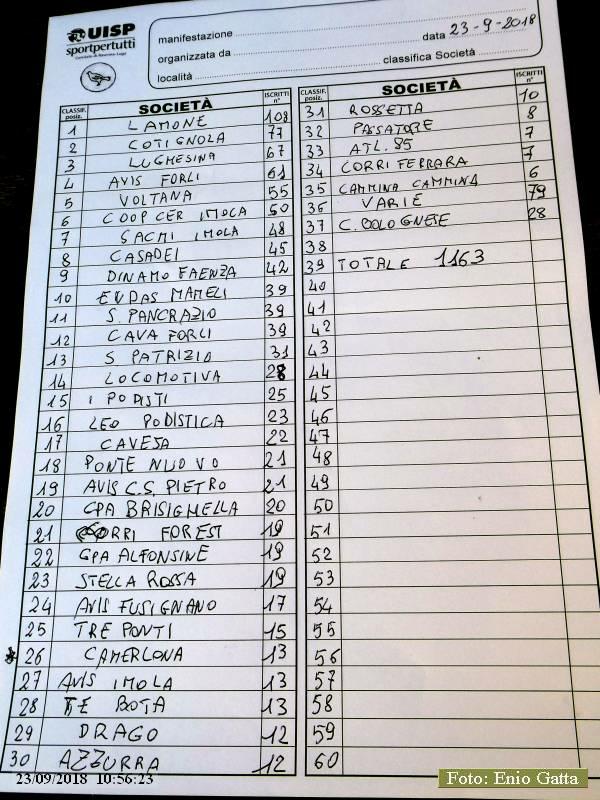 UISP
sportpertutti
Comitato di Ravenna-Lugo
manifestazione
data 23-9-2018
organizzata da
classifica Società
località
CLASSIF. posiz. SOCIETÀ ISCRITTI n°
1 LAMONE 108
2 COTIGNOLA 77
3 LUGHESINA 67
4 AVIS FORLI 61
5 VOLTANA 55
6 COOP CER IMOLA 50
7 SACMI IMOLA 48
8 CASADEI 45
9 DINAMO FAENZA 42
10 ENDAS MAMELI 39
11 S. PANCRAZIO 39
12 CAVA FORLI 39
13 S. PATRIZIO 31
14 LOCOMOTIVA 28
15 I PODISTI 25
16 LEO PODISTICA 23
17 CAVEJA 22
18 PONTE NUOVO 21
19 AVIS C.S. PIETRO 21
20 GPA BRISIGHELLA 20
21 CORRI FOREST 19
22 GPA ALFONSINE 19
23 STELLA ROSSA 19
24 AVIS FUSIGNANO 17
25 TRE PONTI 15
26 CAMERLONA 13
27 AVIS IMOLA 13
28 TE BOTA 13
29 DRAGO 12
30 AZZURRA 12
CLASSIF. posiz. SOCIETÀ ISCRITTI n°
31 ROSSETTA 10
32 PASSATORE 8
33 ATL. 85 7
34 CORRI FERRARA 7
35 CAMMINA CAMMINA 6
36 VARIE 79
37 C. BOLOGNESE 28
38
39 TOTALE 1163
40
41
42
43
44
45
46
47
48
49
50
51
52
53
54
55
56
57
58
59
60
23/09/2018 10:56:23
Foto: Enio Gatta